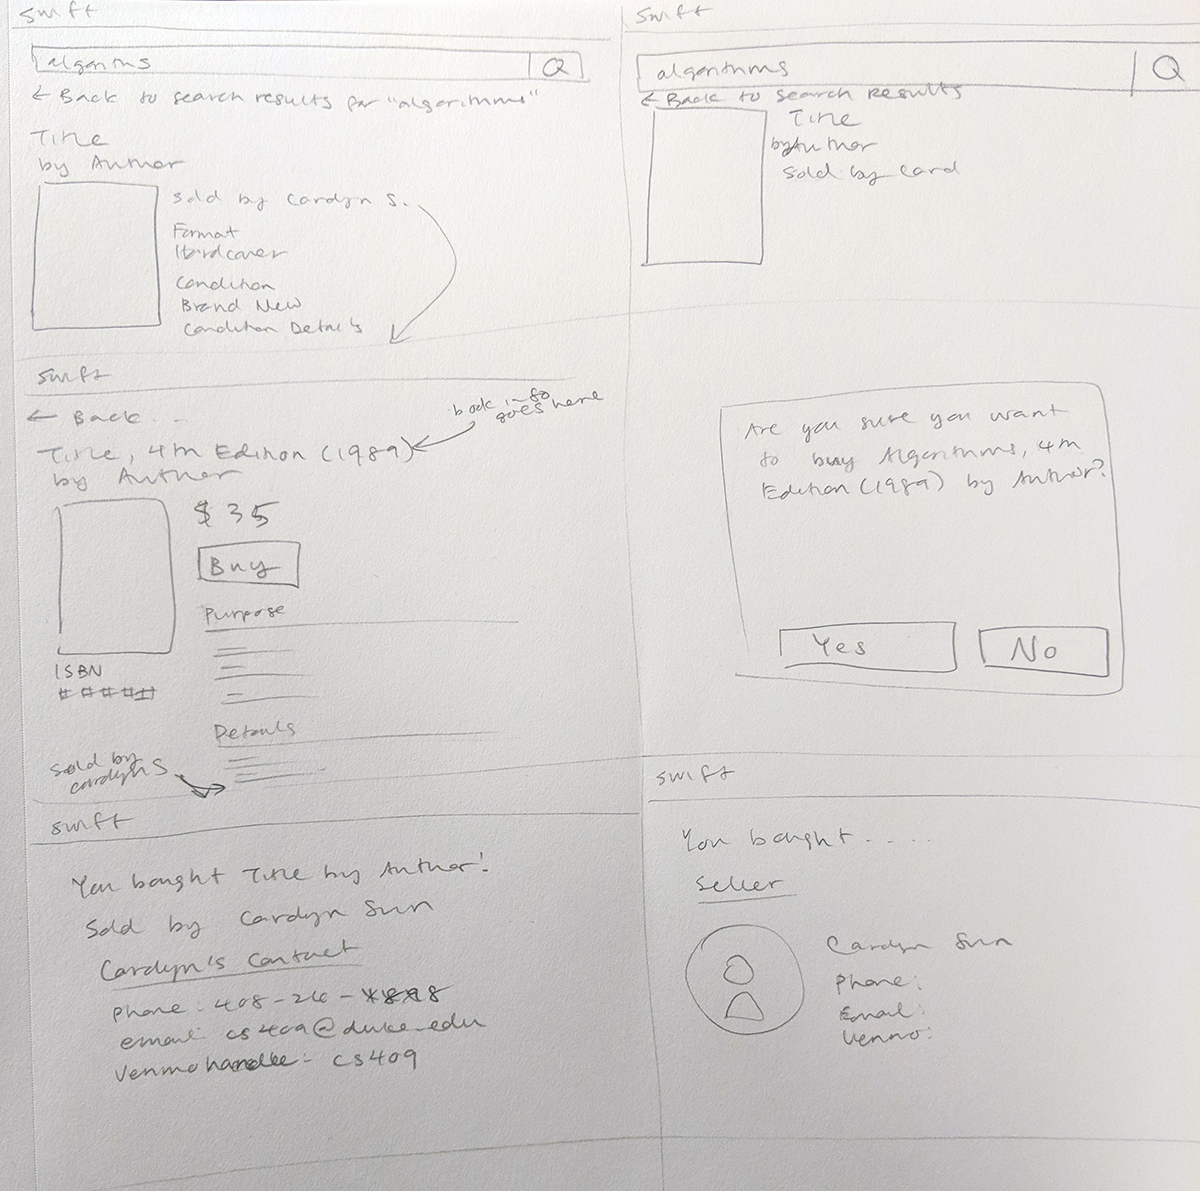 swift
algorithms
← Back to search results for "algorithms"
Title
by Author
Sold by Carolyn S.
Format
Hardcover
Condition
Brand New
Condition Details
swift
algorithms
← Back to search results
Title
by Author
Sold by Carol
swift
← Back ...
book info
goes here
Title, 4th Edition (1989)
by Author
$35
Buy
Purpose
ISBN
#####
Details
Sold by
Carolyn S
Are you sure you want
to buy Algorithms, 4th
Edition (1989) by Author?
Yes
No
swift
You bought Title by Author!
Sold by Carolyn Sun
Carolyn's Contact
phone: 408-26-
email: cs409@duke.edu
Venmo handle: cs409
swift
You bought .....
Seller
Carolyn Sun
Phone:
Email:
Venmo: